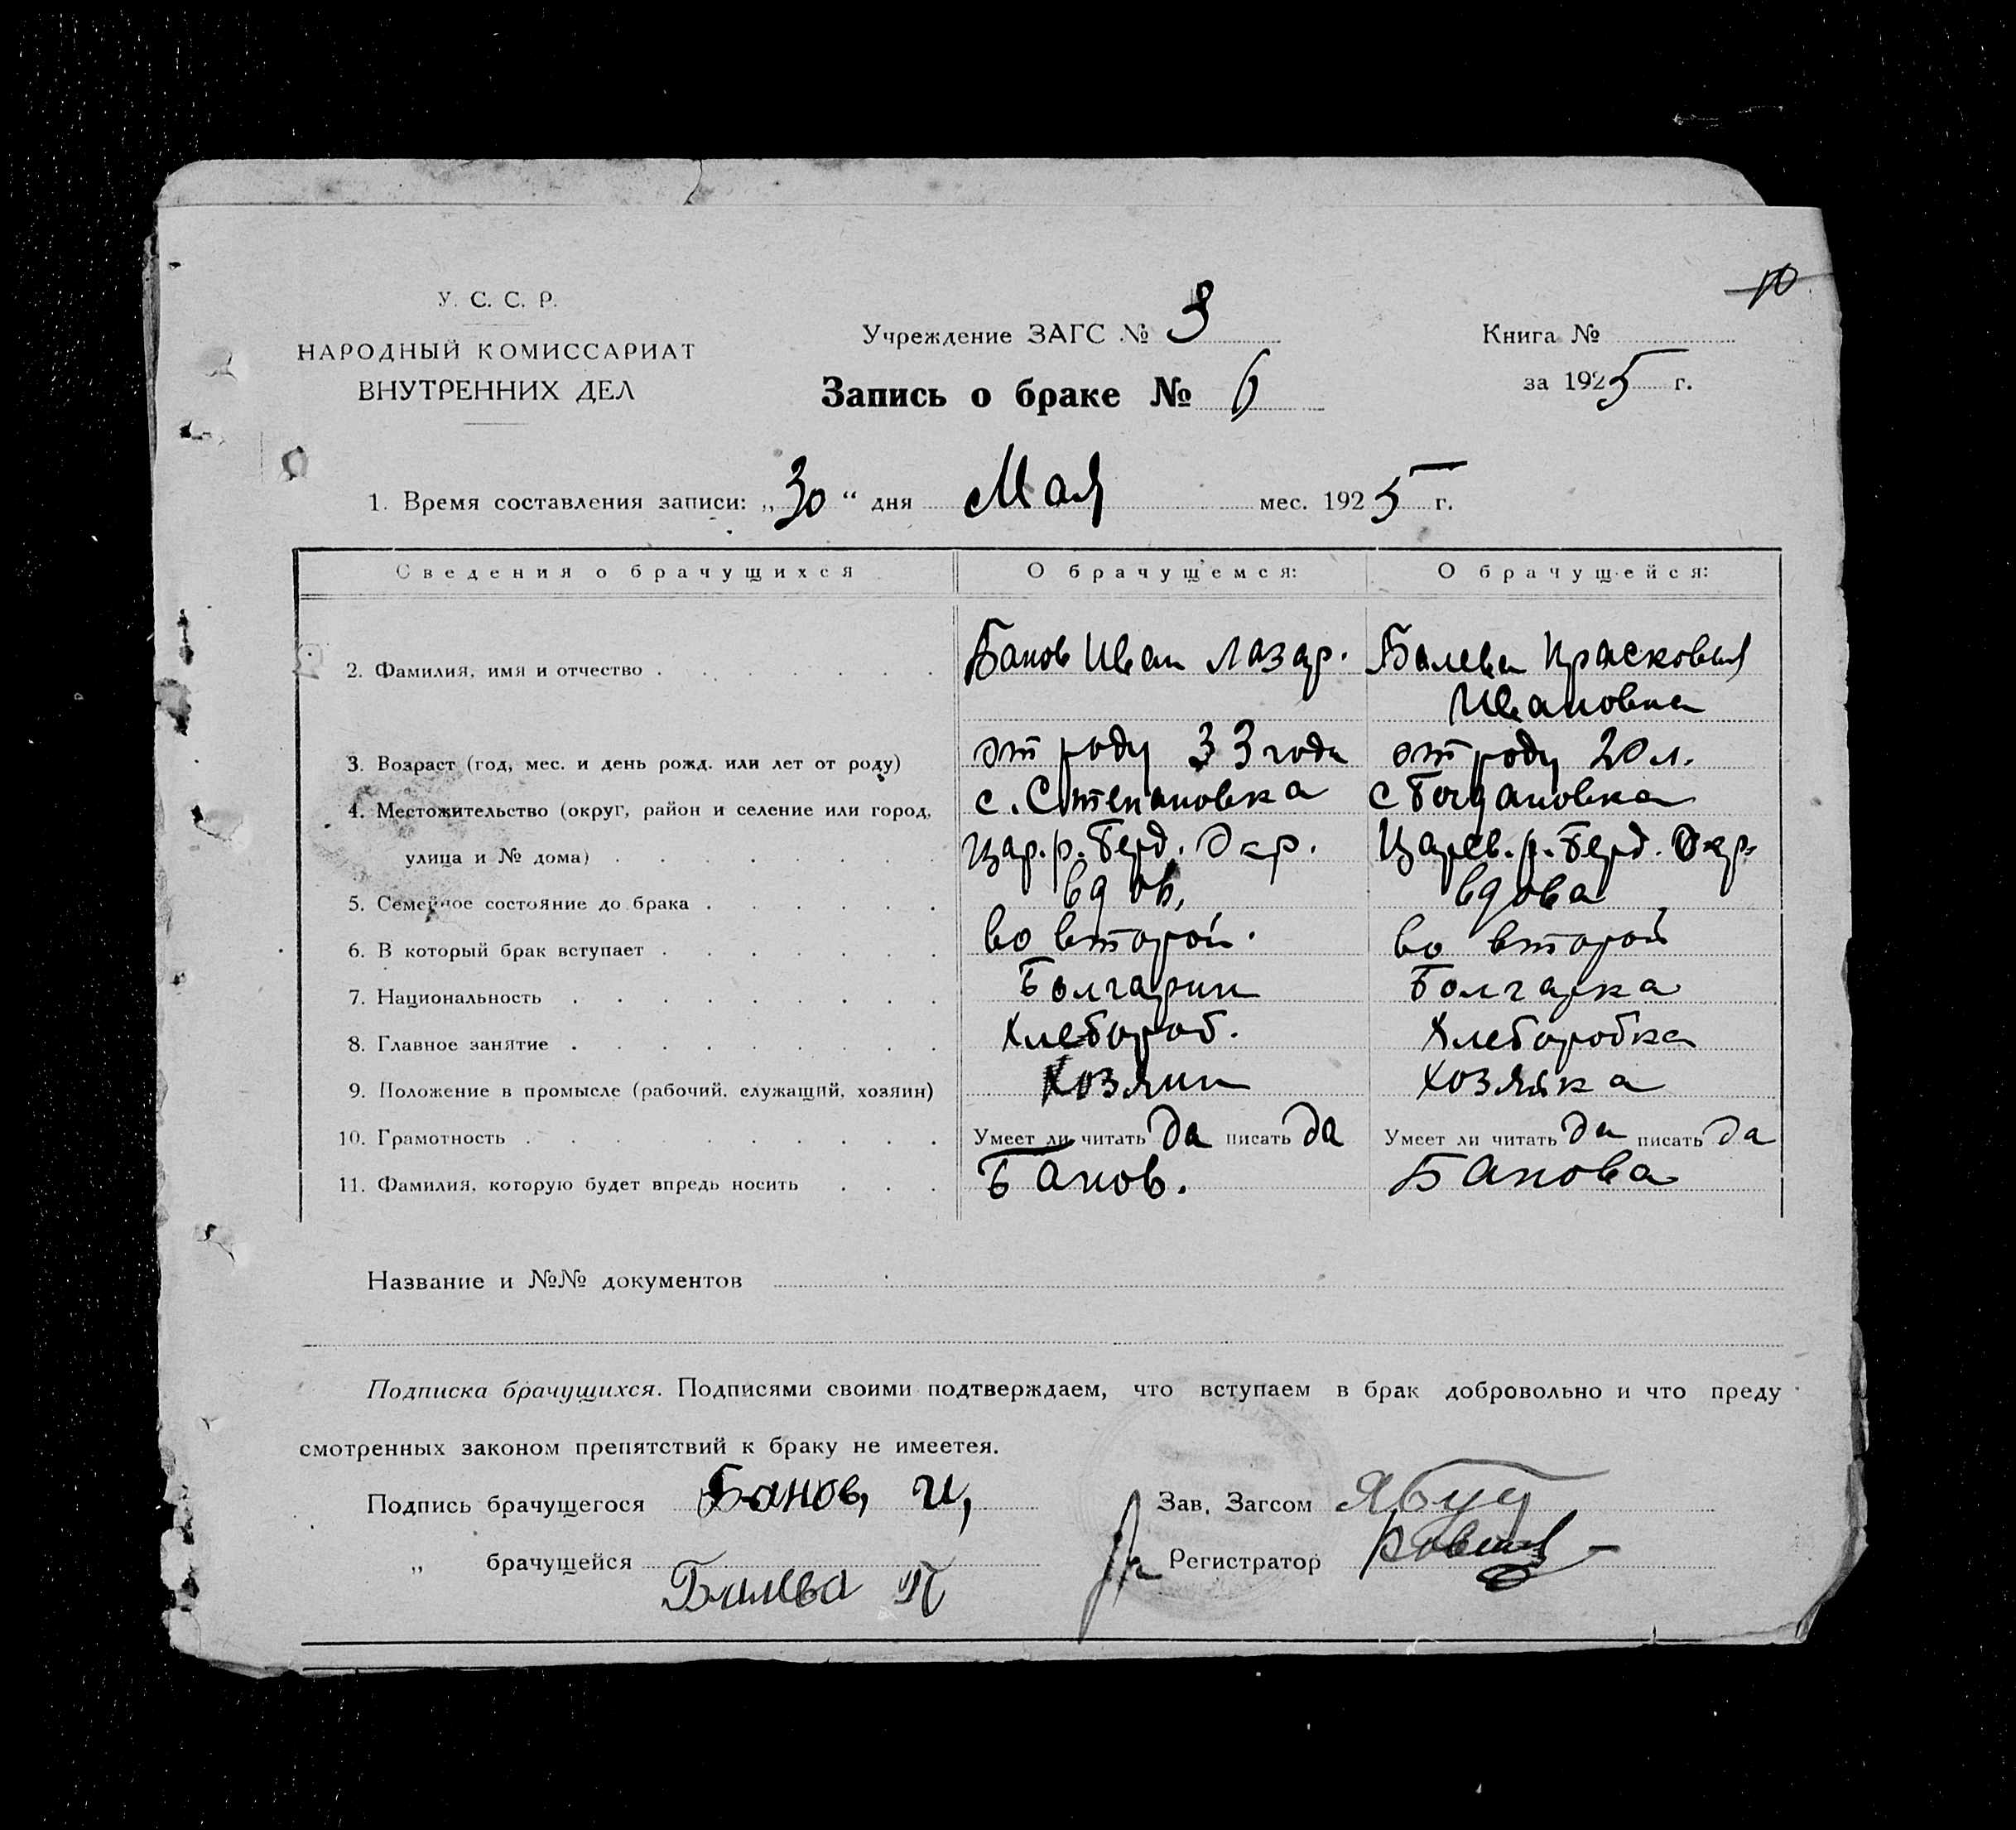 10
У. С. С. Р.
НАРОДНЫЙ КОМИССАРИАТ
ВНУТРЕННИХ ДЕЛ
Учреждение ЗАГС № 3
Запись о браке № 6
Книга №
за 1925 г.
1. Время составления записи: „30“ дня Мая мес. 1925 г.
Сведения о брачущихся О брачущемся: О брачущейся:
2. Фамилия, имя и отчество Банов Иван Лазар. Балева Прасковья
Ивановна
3. Возраст (год, мес. и день рожд. или лет от роду) от роду 33 года от роду 20 л.
4. Местожительство (округ, район и селение или город, с. Степановка с Богдановка
улица и № дома) Цар. р. Берд. Окр. Царев. р. Берд. Окр.
5. Семейное состояние до брака вдов, вдова
6. В который брак вступает во второй. во второй
7. Национальность Болгарин Болгарка
8. Главное занятие Хлебороб. Хлеборобка
9. Положение в промысле (рабочий, служащий, хозяин) Хозяин хозяйка
10. Грамотность Умеет ли читать да писать да Умеет ли читать да писать да
11. Фамилия, которую будет впредь носить Банов. Банова
Название и №№ документов
Подписка брачущихся. Подписями своими подтверждаем, что вступаем в брак добровольно и что преду
смотренных законом препятствий к браку не имеетея.
Подпись брачущегося Банов, И, Зав. Загсом
„ брачущейся Балева П Регистратор